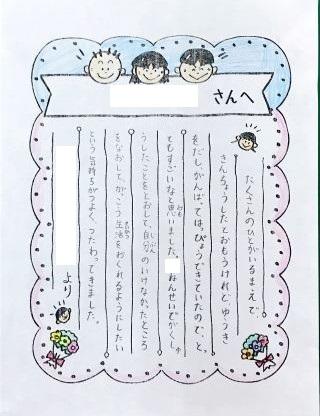 さんへ
たくさんのひとがいるまえで、
きんちょうしたとおもうけれど、ゆうき
をだしがんばってはっぴょうできていたので、と
てもすごいなと思いました。 ねんせいでがくしゅ
うしたことをとおして、自分のいけなかったところ
をなおして、がっこう生活をおくれるようにしたい
という気持ちがつよく、つたわってきました。
より